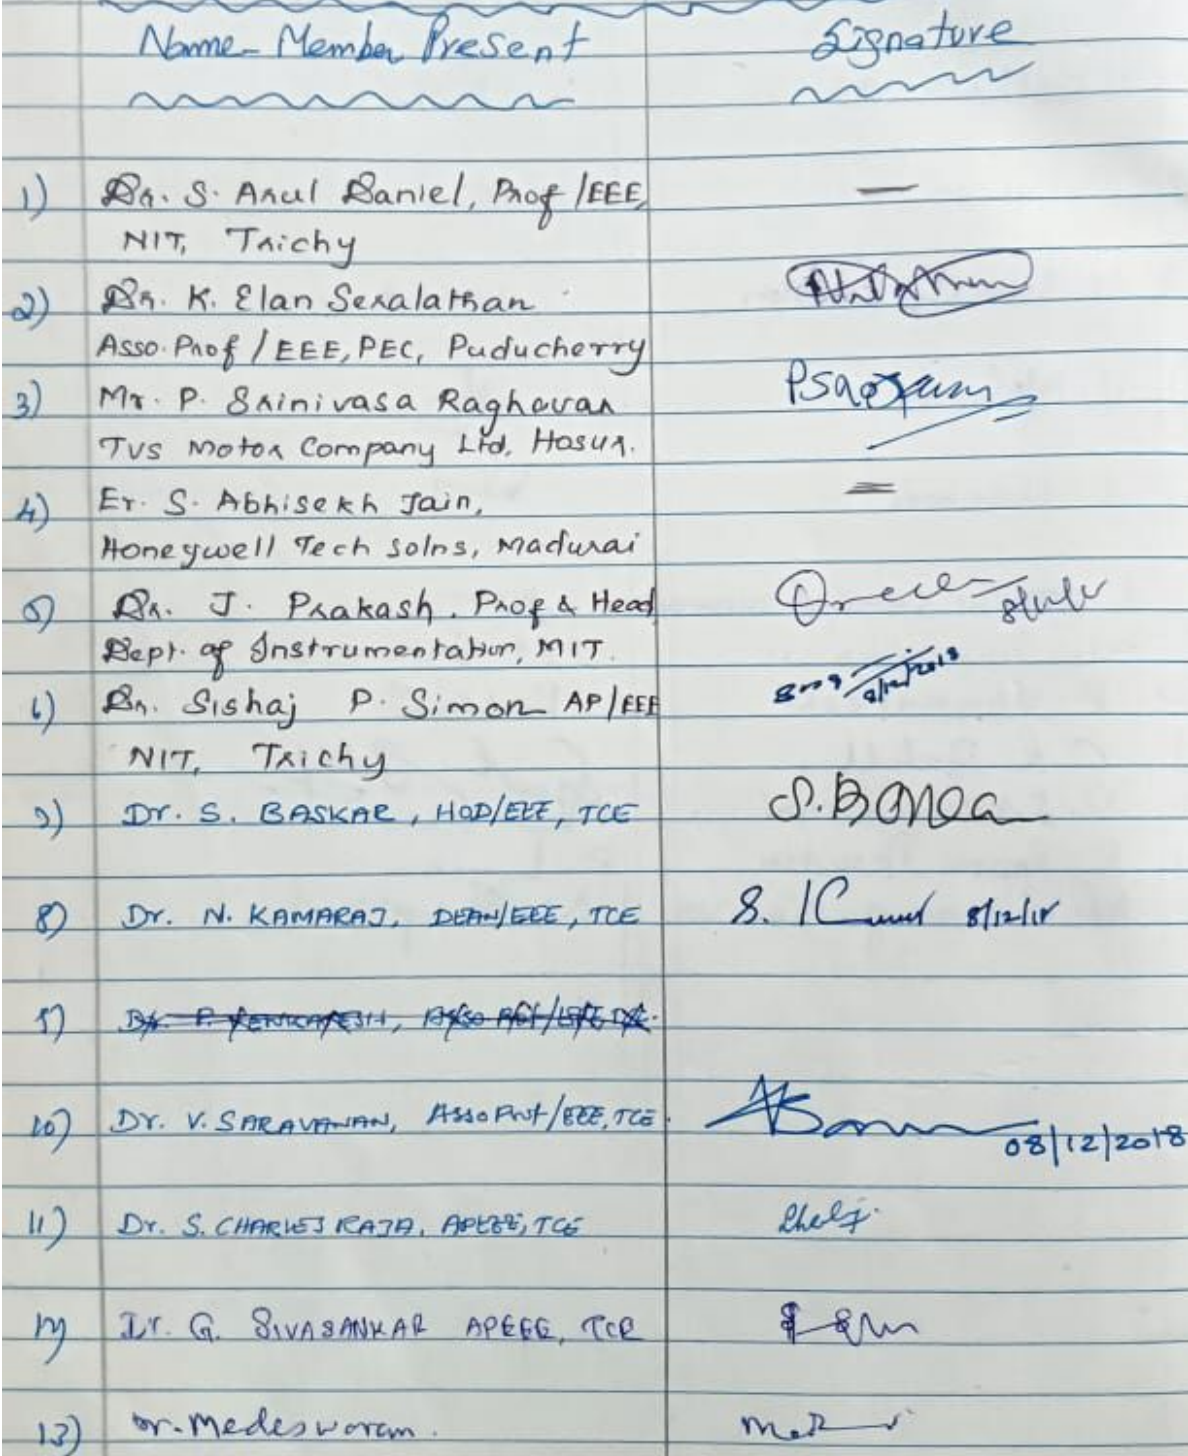 Name - Member Present Signature
1) Dr. S. Arul Daniel, Prof /EEE, —
NIT, Trichy
2) Dr. K. Elan Seralathan
Asso. Prof / EEE, PEC, Puducherry
3) Mr. P. Srinivasa Raghavan
TVS Motor Company Ltd, Hosur.
4) Er. S. Abhisekh Jain,
Honeywell Tech Solns, Madurai
5) Dr. J. Prakash, Prof & Head
Dept. of Instrumentation, MIT.
6) Dr. Sishaj P. Simon AP/EEE 8/12/2018
NIT, Trichy
7) Dr. S. BASKAR, HOD/EEE, TCE
8) Dr. N. KAMARAJ, DEAN/EEE, TCE 8/12/18
9) Dr. P. VENKATESH, Asso Prof/EEE TCE.
10) Dr. V. SARAVANAN, Asso Prof/EEE, TCE.
08/12/2018
11) Dr. S. CHARLES RAJA, AP/EEE, TCE
12) Dr. G. SIVASANKAR APEEE, TCE
13) Dr. Medeswaran.